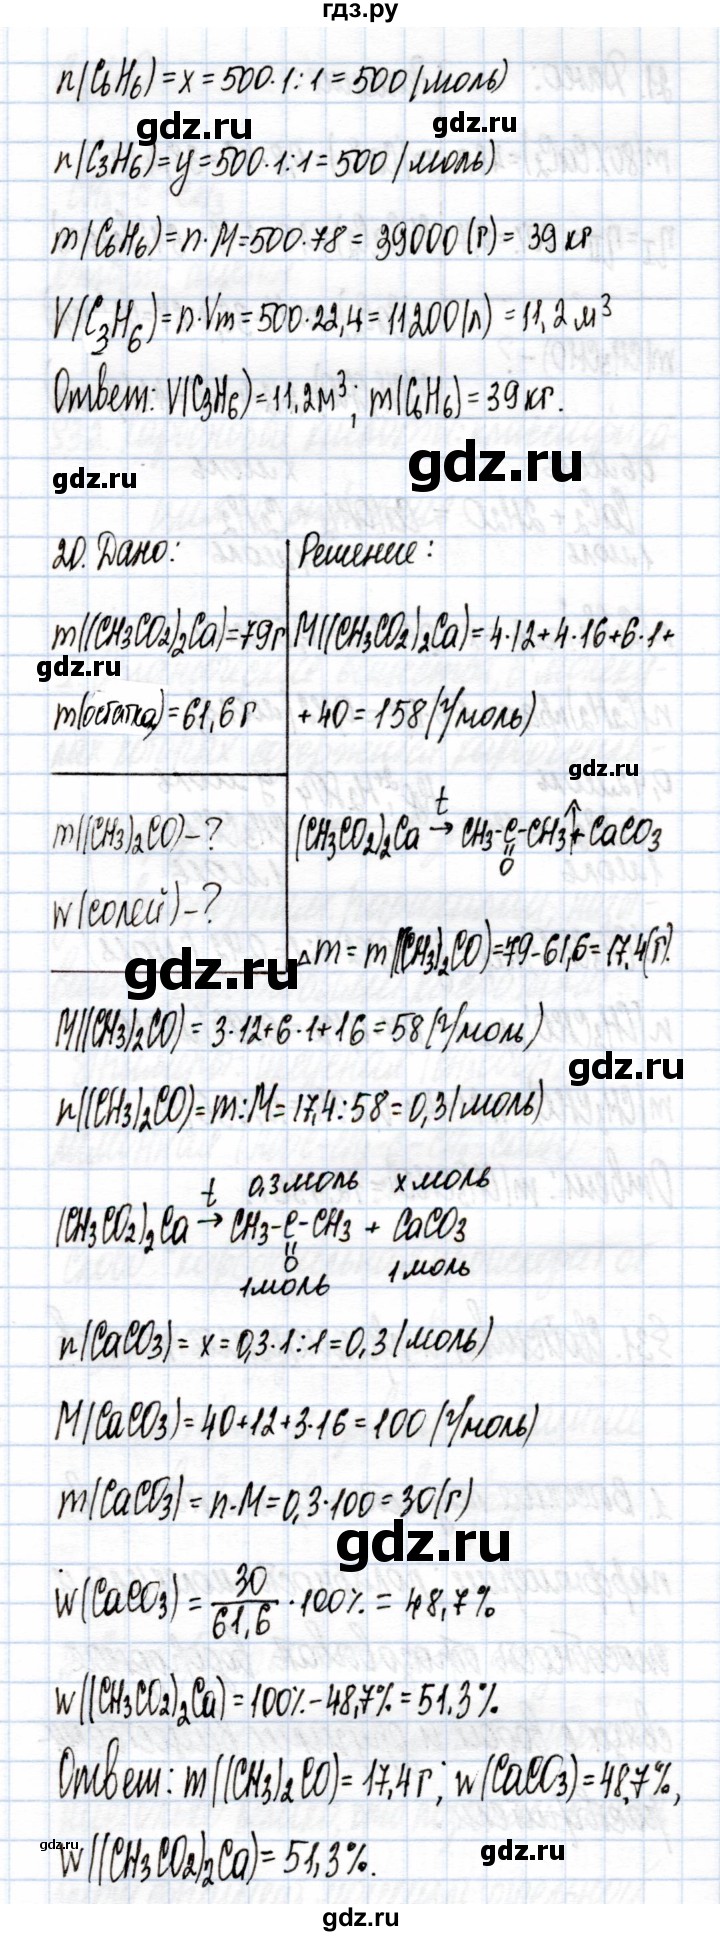 гдз.ру
n(C6H6)=x=500·1:1=500(моль)
gdz.ru
gdz.ru
n(C3H6)=y=500·1:1=500(моль)
m(C6H6)=n·M=500·78=39000(г)=39 кг
V(C3H6)=n·Vm=500·22,4=11200(л)=11,2 м³
Ответ: V(C3H6)=11,2м³; m(C6H6)=39 кг.
gdz.ru
gdz.ru
20. Дано:
Решение:
m((CH3CO2)2Ca)=79г
M((CH3CO2)2Ca)=4·12+4·16+6·1+
gdz.ru
m(остатка)=61,6 г
+40=158(г/моль)
gdz.ru
t
m((CH3)2CO)-?
(CH3CO2)2Ca → CH3-C-CH3↑+CaCO3
O
w(солей)-?
Δm=m((CH3)2CO)=79-61,6=17,4(г).
gdz.ru
M((CH3)2CO)=3·12+6·1+16=58(г/моль)
gdz.ru
n((CH3)2CO)=m:M=17,4:58=0,3(моль)
0,3моль x моль
t
(CH3CO2)2Ca → CH3-C-CH3 + CaCO3
O
1моль 1моль
n(CaCO3)=x=0,3·1:1=0,3(моль)
M(CaCO3)=40+12+3·16=100(г/моль)
m(CaCO3)=n·M=0,3·100=30(г)
gdz.ru
w(CaCO3)=30/61,6·100%=48,7%
w((CH3CO2)2Ca)=100%-48,7%=51,3%
Ответ: m((CH3)2CO)=17,4г; w(CaCO3)=48,7%,
gdz.ru
w((CH3CO2)2Ca)=51,3%.
gdz.ru
gdz.ru